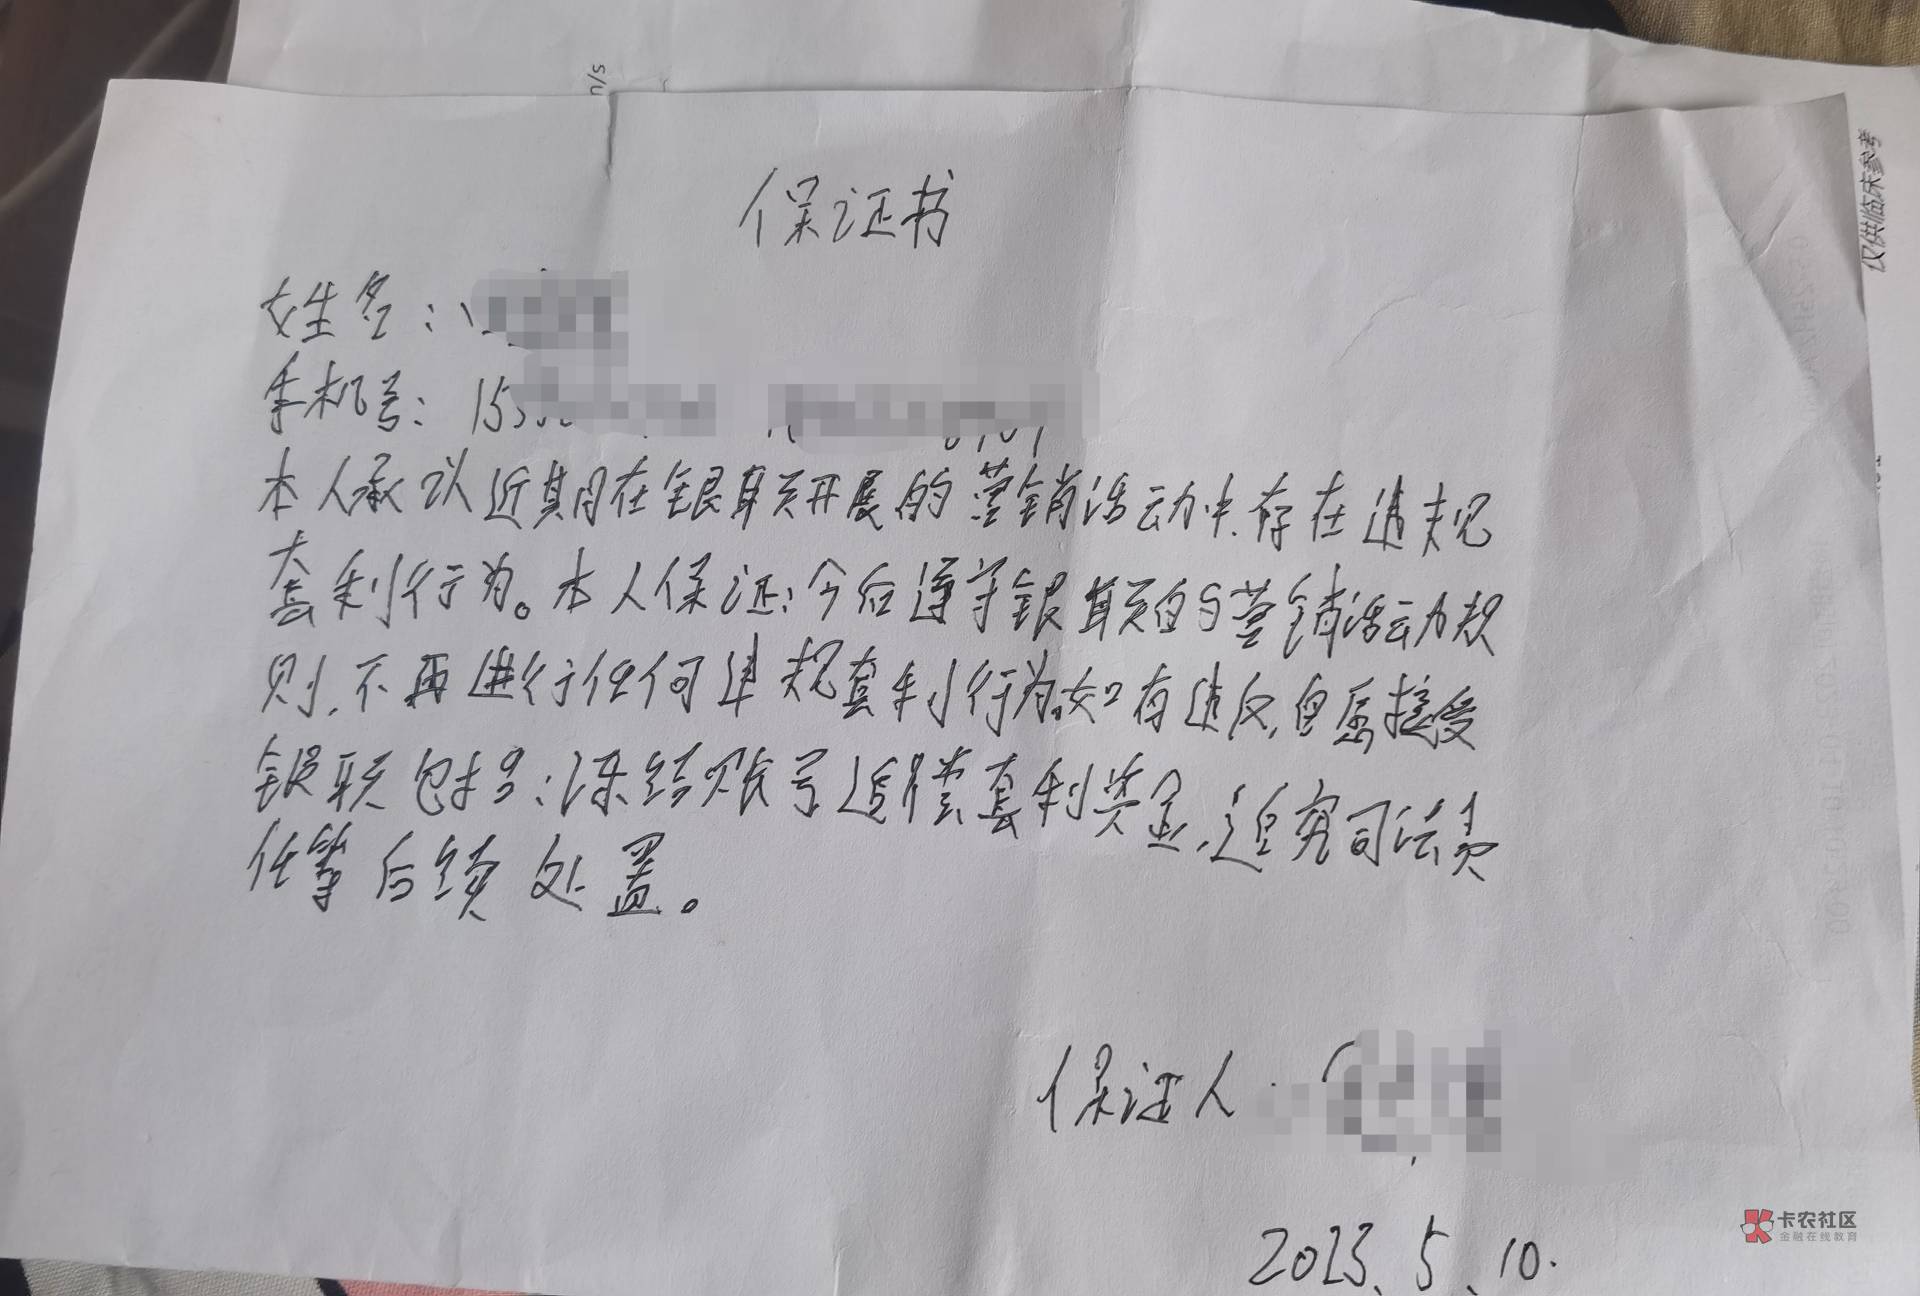 s/n
仅供临床参考
保证书
姓名:
手机号: 15
本人承认近期在银联开展的营销活动中,存在违规
套利行为。本人保证:今后遵守银联的营销活动规
则,不再进行任何违规套利行为,如有违反,自愿接受
银联包括:冻结账号追偿套利奖金,追究司法责
任等后续处置。
保证人
2023.5.10.
卡农社区
金融在线教育